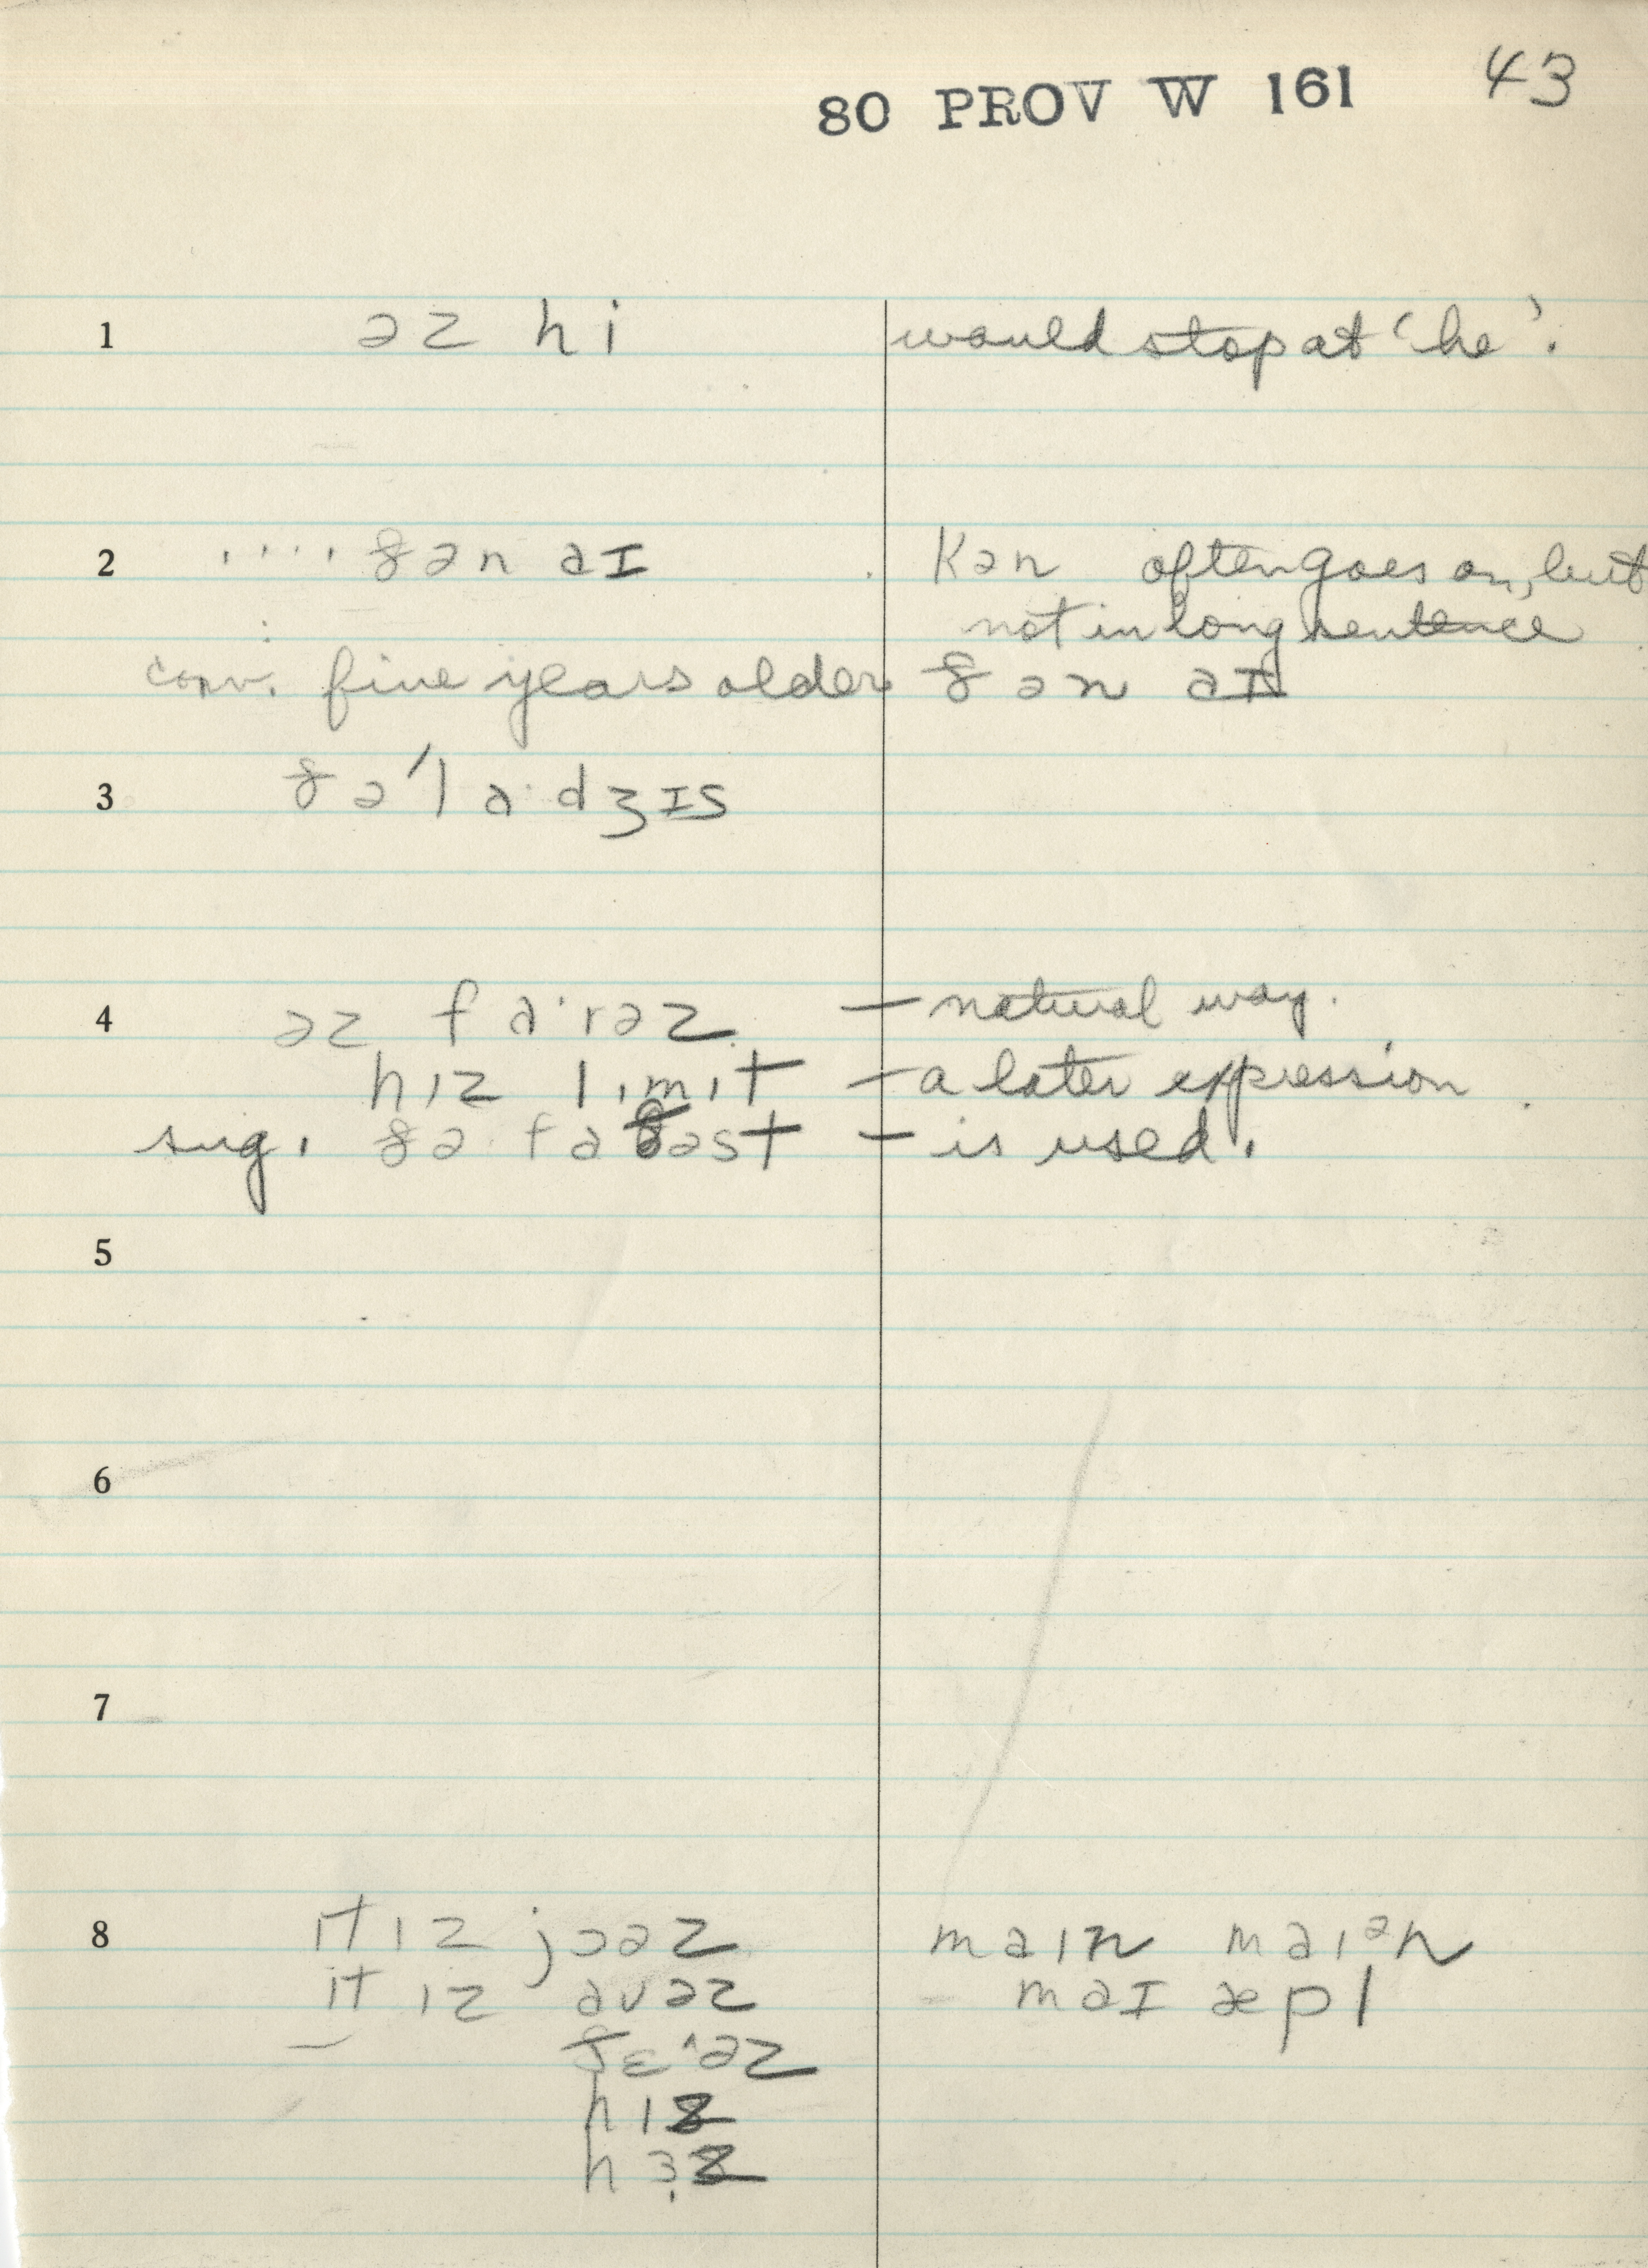 80 PROV W 161 43
1 əz hi would stop at ‘he’.
2 ․․․․ ðən aɪ kən often goes on, but
not in long sentence
conv. five years older ðən aɪ
3 ðə'la·dʒɪs
4 əz fa·rəz – natural way.
hɪz lɪmɪt – a later expression
sug. ðə faðəst – is used.
5
6
7
8 ɪt ɪz jɔəz maɪn maɪᵊn
ɪt ɪz avəz maɪ æpl
ðɛ·əz
hɪz
hɜz